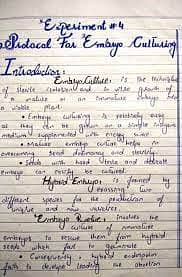 "Experiment #4
Protocol For Embryo Culturing
Introduction:
Embryo Culture: is the technique
of sterile isolation and growth of
a mature or an immature embryo
viable plant.
• Embryo culturing is relatively easy
as they can be grown on a simple
medium supplemented with energy
• Mature embryo culture helps in
overcoming seed dormancy and sterility
• Seeds with hard testa and
can easily be cultured.
Hybrid Embryo: is formed by
crossing two
different species for the production of
and new varieties.
Embryo Rescue: involves the
culture of immature
embryos to rescue them from hybrid
seeds which fail to germinate
• Consequently, hybrid
fails to develop leading to the abortion